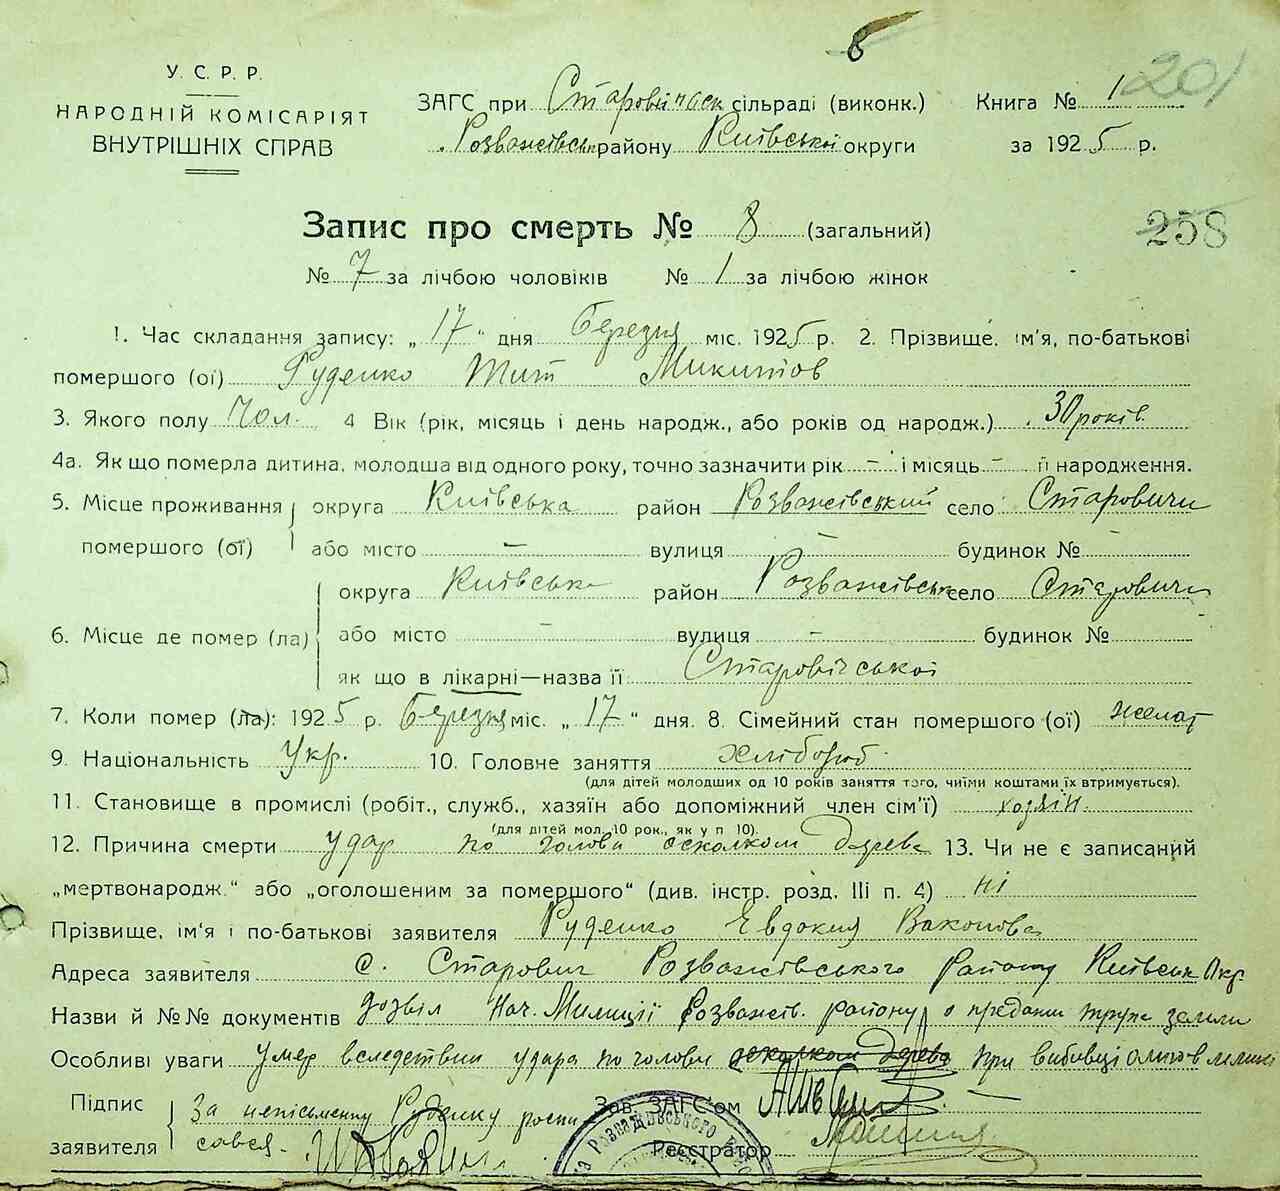 У. С. Р. Р.
НАРОДНІЙ КОМІСАРІЯТ
ВНУТРІШНІХ СПРАВ
ЗАГС при Старовічаск сільраді (виконк.)
Розважівськ району Київської округи
Книга № 1
за 1925 р.
201
258
Запис про смерть № 8 (загальний)
№ 7 за лічбою чоловіків № 1 за лічбою жінок
1. Час складання запису: „17“ дня березня міс. 1925 р. 2. Прізвище, ім'я, по-батькові
помершого (ої) Руденко Тит Микитов
3. Якого полу Чол. 4 Вік (рік, місяць і день народж., або років од народж.) 30 років
4а. Як що померла дитина, молодша від одного року, точно зазначити рік – і місяць – її народження.
5. Місце проживання округа Київська район Розважівський село Старовичи
помершого (ої) або місто – вулиця – будинок №
округа Київська район Розважівськ село Старовичи
6. Місце де помер (ла) або місто – вулиця – будинок №
як що в лікарні—назва її Старовічської
7. Коли помер (ла): 1925 р. березня міс. „17“ дня. 8. Сімейний стан помершого (ої) женат
9. Національність Укр. 10. Головне заняття хлібороб
(для дітей молодших од 10 років заняття того, чиїми коштами їх втримується).
11. Становище в промислі (робіт., служб., хазяїн або допоміжний член сім'ї) хозяїн.
(для дітей мол. 10 рок., як у п 10).
12. Причина смерти удар по голові осколком дерева 13. Чи не є записаний
„мертвонародж.“ або „оголошеним за помершого“ (див. інстр. розд. III п. 4) ні
Прізвище, ім'я і по-батькові заявителя Руденко Евдокия
Адреса заявителя с. Старович Розважівського району Київськ Окр.
Назви й №№ документів дозвіл Нач. Милиції Розважів. району о предании трупа земли
Особливі уваги умер вследствии удара по голови осколком дерева при
Підпис
заявителя
За неписьменну Руденку роспи
сався.
Зав. ЗАГС'ом
Реєстратор